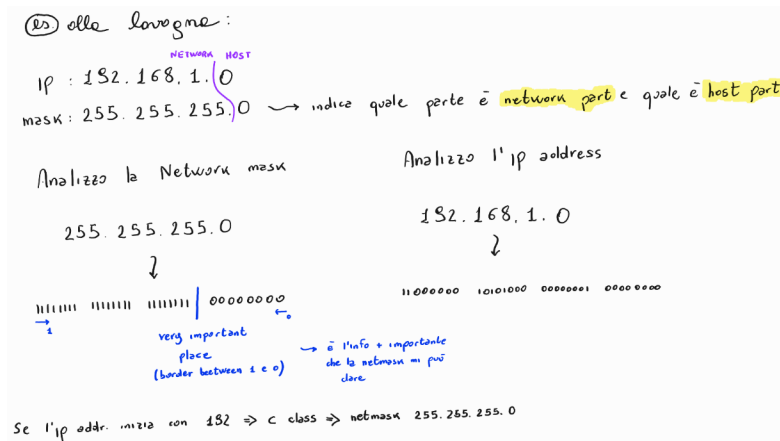 es. alla lavagna:
NETWORK HOST
IP : 192.168.1.0
mask : 255.255.255.0 → indica quale parte è network part e quale è host part
Analizzo la Network mask
255.255.255.0
↓
11111111 11111111 11111111 | 00000000
→ 1
← 0
very important
place
(border beetween 1 e 0)
→ è l'info + importante
che la netmask mi può
dare
Analizzo l'ip address
192.168.1.0
↓
11000000 10101000 00000001 00000000
Se l'ip addr. inizia con 192 => C class => netmask 255.255.255.0